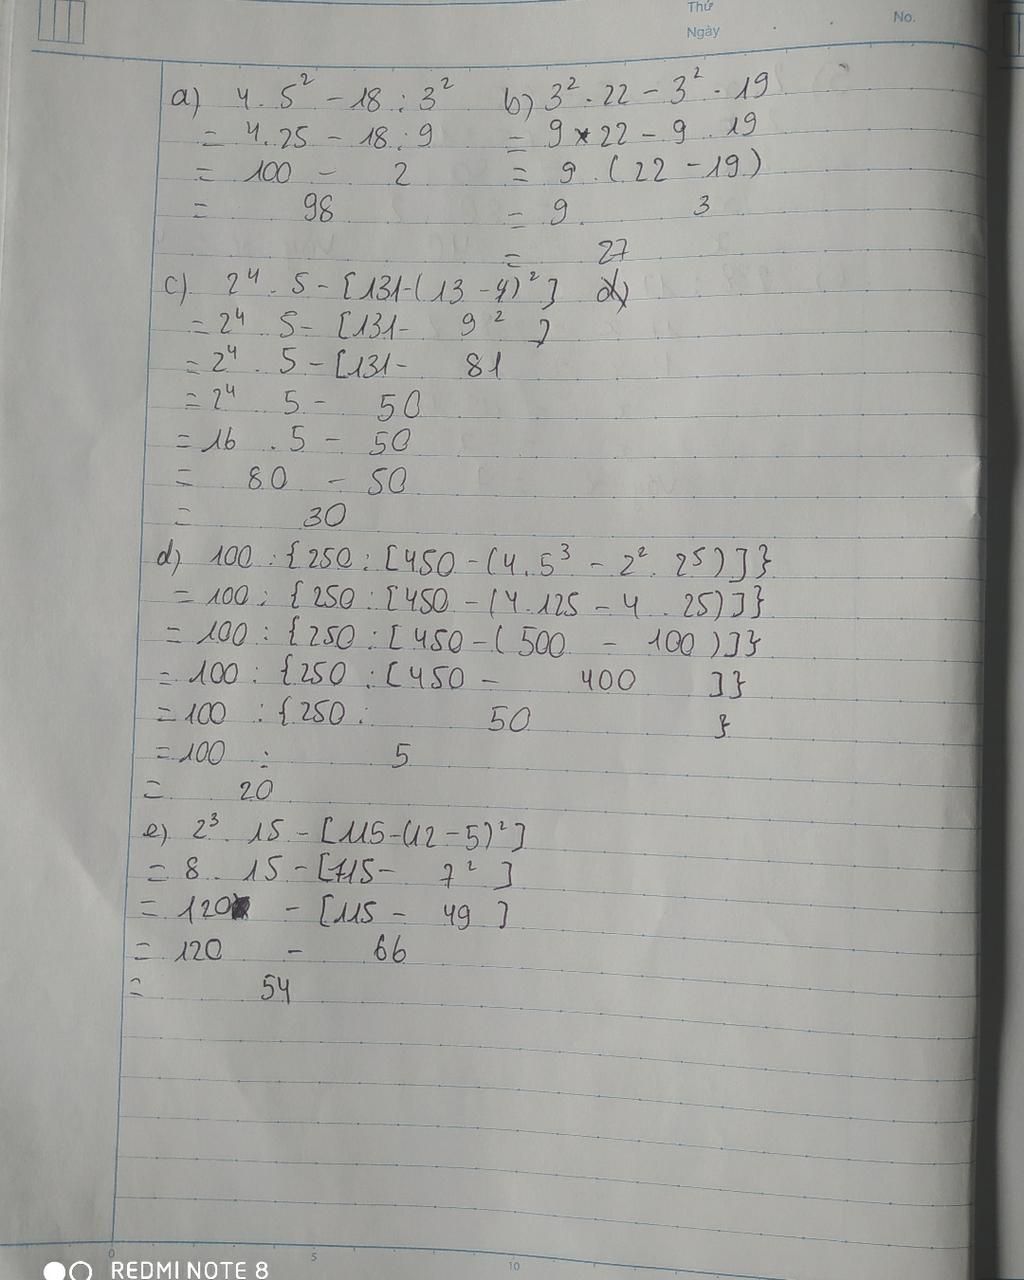 Thứ
Ngày
No.
a) 4 . 5² - 18 : 3²
= 4 . 25 - 18 : 9
= 100 - 2
= 98
b) 3² . 22 - 3² . 19
= 9 * 22 - 9 . 19
= 9 . (22 - 19)
= 9 . 3
= 27
c) 2⁴ . 5 - [131 - (13 - 4)²]
= 2⁴ . 5 - [131 - 9²]
= 2⁴ . 5 - [131 - 81
= 2⁴ 5 - 50
= 16 . 5 - 50
= 80 - 50
= 30
d) 100 : {250 : [450 - (4 . 5³ - 2² . 25)]}
= 100 : {250 : [450 - (4 . 125 - 4 . 25)]}
= 100 : {250 : [450 - (500 - 100)]}
= 100 : {250 : [450 - 400 ]}
= 100 : {250 : 50 }
= 100 : 5
= 20
e) 2³ . 15 - [115 - (12 - 5)²]
= 8 . 15 - [115 - 7²]
= 120 - [115 - 49]
= 120 - 66
= 54
0 5 10
REDMI NOTE 8